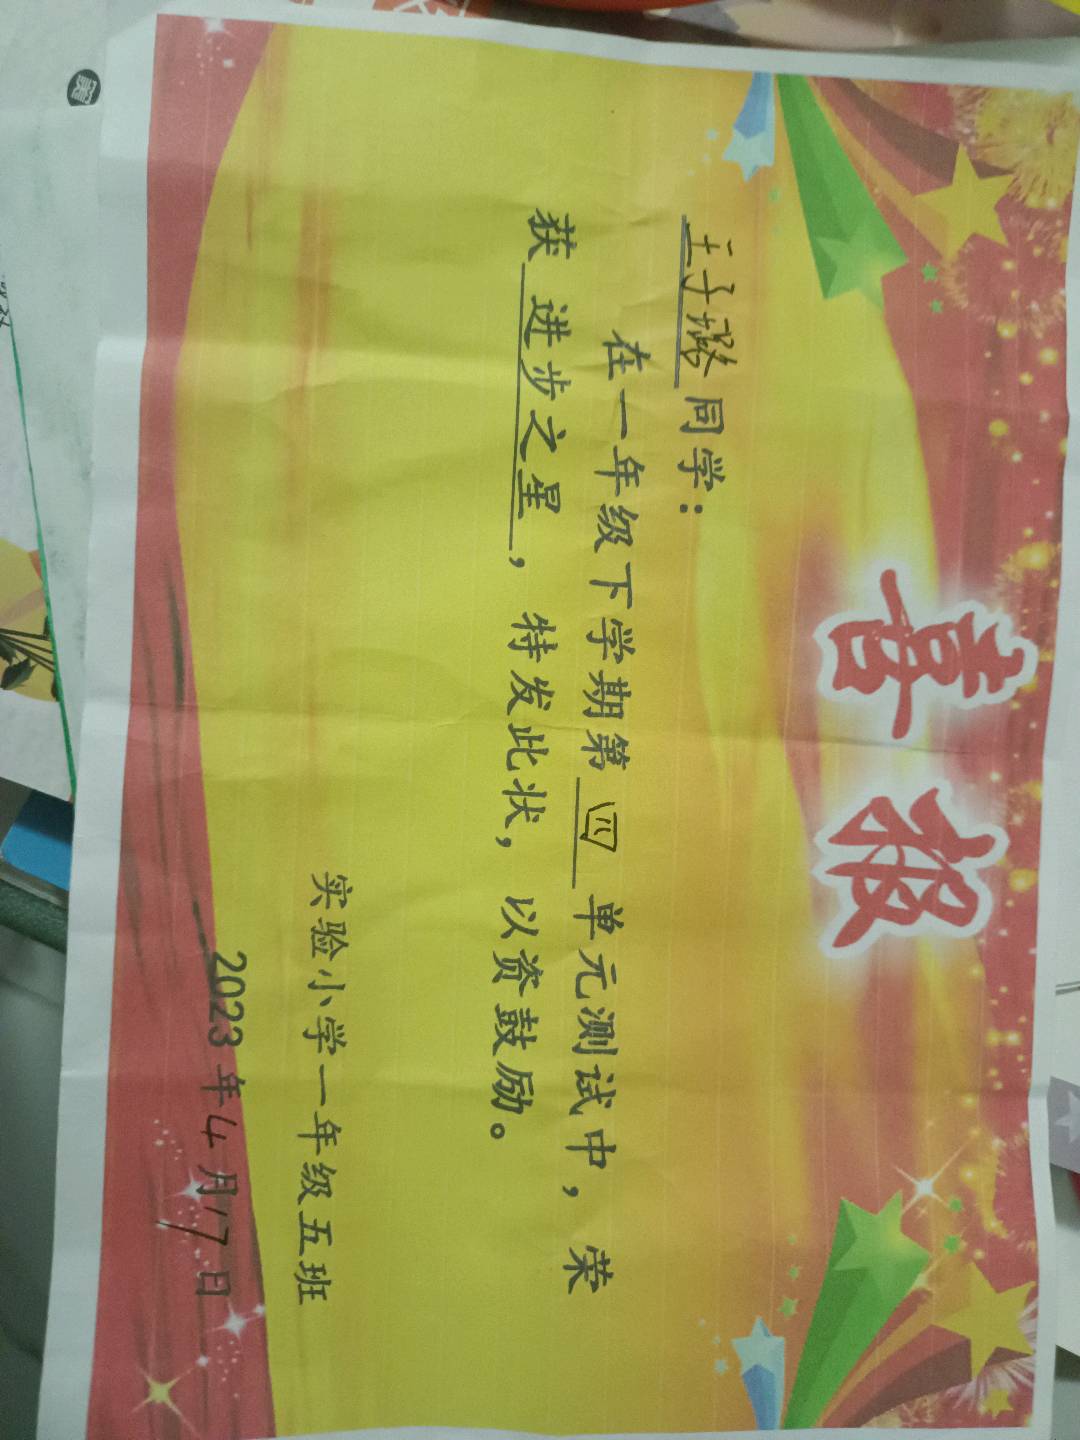 喜报
王子璐同学：
在一年级下学期第四单元测试中，荣
获进步之星，特发此状，以资鼓励。
实验小学一年级五班
2023年4月17日